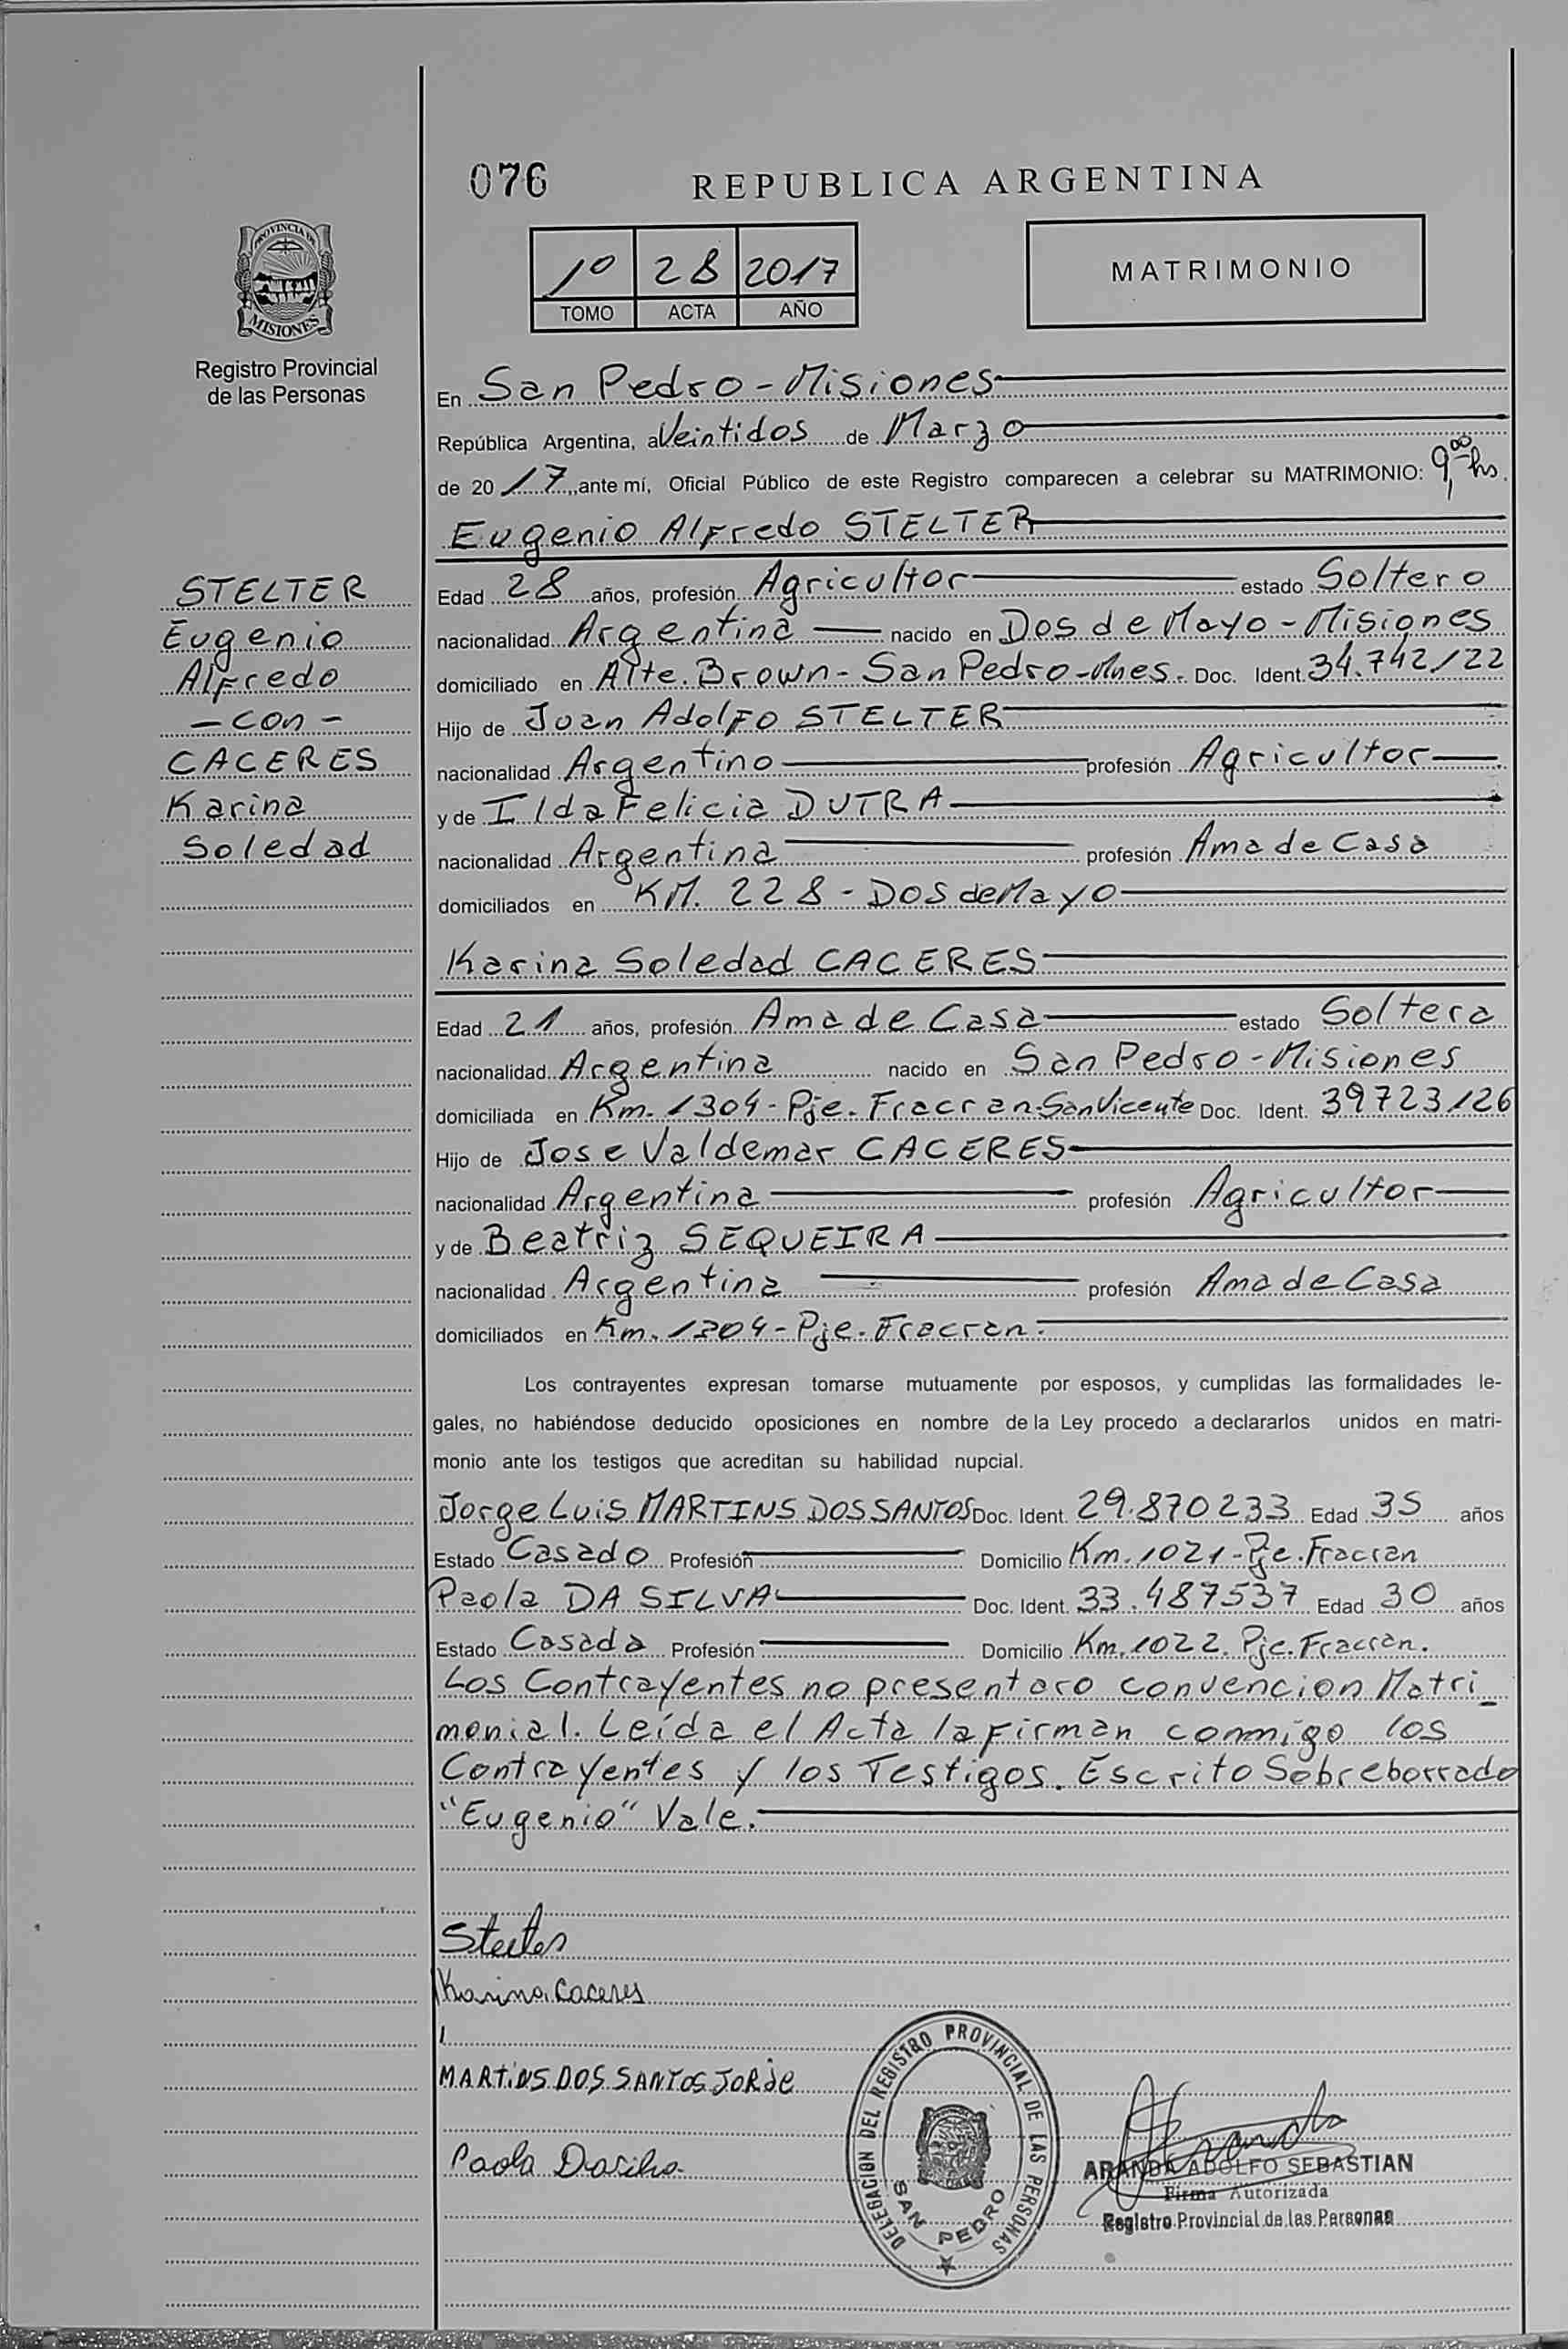 076
REPUBLICA ARGENTINA
PROVINCIA DE
MISIONES
Registro Provincial
de las Personas
1º 28 2017
TOMO ACTA AÑO
MATRIMONIO
En San Pedro - Misiones
República Argentina, a Veintidos de Marzo
de 2017, ante mí, Oficial Público de este Registro comparecen a celebrar su MATRIMONIO: 9,00 hs.
Eugenio Alfredo STELTER
STELTER
Eugenio
Alfredo
- con -
CACERES
Karina
Soledad
Edad 28 años, profesión Agricultor estado Soltero
nacionalidad Argentina nacido en Dos de Mayo - Misiones
domiciliado en Alte. Brown - San Pedro - Mnes. Doc. Ident. 34.742122
Hijo de Juan Adolfo STELTER
nacionalidad Argentino profesión Agricultor
y de Ilda Felicia DUTRA
nacionalidad Argentina profesión Ama de Casa
domiciliados en KM. 228 - Dos de Mayo
Karina Soledad CACERES
Edad 21 años, profesión Ama de Casa estado Soltera
nacionalidad Argentina nacido en San Pedro - Misiones
domiciliada en Km. 1304 - Pje. Fracran - San Vicente Doc. Ident. 39723126
Hijo de Jose Valdemar CACERES
nacionalidad Argentina profesión Agricultor
y de Beatriz SEQUEIRA
nacionalidad Argentina profesión Ama de Casa
domiciliados en Km. 1304 - Pje. Fracran.
Los contrayentes expresan tomarse mutuamente por esposos, y cumplidas las formalidades le-
gales, no habiéndose deducido oposiciones en nombre de la Ley procedo a declararlos unidos en matri-
monio ante los testigos que acreditan su habilidad nupcial.
Jorge Luis MARTINS DOS SANTOS Doc. Ident. 29.870233 Edad 35 años
Estado Casado Profesión Domicilio Km. 1021 - Pje. Fracran
Paola DA SILVA Doc. Ident. 33.487537 Edad 30 años
Estado Casada Profesión Domicilio Km. 1022. Pje. Fracran.
Los Contrayentes no presentaro convencion Matri-
monial. Leída el Acta la firman conmigo los
Contrayentes y los Testigos. Escrito Sobreborrado
"Eugenio" Vale.
Stelter
Karina Caceres
MARTiNS DOS SANTOS JORJe
Paola Dasilva
DELEGACION DEL REGISTRO PROVINCIAL DE LAS PERSONAS
SAN PEDRO
ARANDA ADOLFO SEBASTIAN
Firma Autorizada
Registro Provincial de las Personas